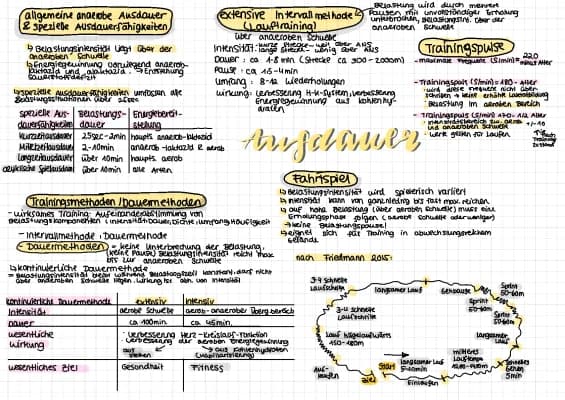 allgemeine anaerobe Ausdauer
& spezielle Ausdauerfähigkeiten
↳ Belastungsintensität liegt über der
anaeroben Schwelle
↳ Energiegewinnung vorwiegend anaerob-
laktazid und alaktazid
↳ spezielle Ausdauerfähigkeiten umfassen alle
Belastungssituationen über 25sec
spezielle Aus- Belastungs- Energiebereit-
dauerfähigkeiten dauer stellung
Kurzzeitausdauer 25sec-2min haupts. anaerob-laktazid
Mittelzeitausdauer 2-10min anaerob-laktazid & aerob
Langzeitausdauer über 10min haupts. aerob
azyklische Spielausdauer über 10min alle Arten
extensive Intervallmethode
(Lauftraining)
über anaeroben Schwelle
Intensität: kurze Strecke - weit über ANS
lange Strecke - wenig über ANS
Dauer: ca 1-8 min (Strecke ca 300-2000m)
Pause: ca 1,5-4min
Umfang: 8-12 Wiederholungen
Wirkung: Verbesserung H-K-System, Verbesserung
Energiegewinnung aus Kohlenhy-
draten
Belastung wird durch mehrere
Pausen mit unvollständiger Erholung
unterbrochen, Belastungsint. über der
anaeroben Schwelle
Trainingspulse
- maximale Frequenz (S/min) = 220
minus Alter
- Trainingspuls (S/min) = 180 - Alter
↳ keine Belastung im aeroben Bereich
- Trainingspuls (S/min) = 170 - 1/2 Alter
+/-10
↳ Werte gelten für Laufen
Ausdauer
Trainingsmethoden/Dauermethoden
- wirksames Training: Aufeinanderabstimmung von
Belastungskomponenten (Intensität, Dauer, Dichte, Umfang, Häufigkeit)
- Intervallmethode, Dauermethode
- Dauermethoden = keine Unterbrechung der Belastung,
(keine Pause) Belastungsintensität reicht max.
bis zur anaeroben Schwelle
↳ kontinuierliche Dauermethode
= Belastungsintensität bleibt während Belastungszeit konstant, darf nicht
über anaeroben Schwelle liegen, Wirkung ist abh. von Intensität
kontinuierliche Dauermethode extensiv intensiv
Intensität aerobe Schwelle aerob-anaerober Übergangsbereich
Dauer ca. 100min. ca. 45min.
wesentliche · Verbesserung Herz-Kreislauf-Funktion
Wirkung · Verbesserung der aeroben Energiegewinnung
aus Fetten aus Kohlenhydraten
wesentliches Ziel Gesundheit Fitness
Fahrtspiel
↳ Belastungsintensität wird spielerisch variiert
↳ Intensität kann von ganz niedrig bis fast max. reichen
↳ auf hohe Belastung (über aerober Schwelle) muss eine
Erholungsphase folgen (aerobe Schwelle oder weniger)
→ keine Belastungspause!
↳ eignet sich für Training in abwechslungsreichem
Gelände
nach Friedmann 2015:
3-4 schnelle
Laufschritte
langsamer Lauf
Gehpause
Sprint
50-60m
Sprint
50-60m
3-4 schnelle
Laufschritte
Lauf hügelaufwärts
150-180m
langsamer
Lauf
Aus-
laufen
Ziel
Start
Einlaufen
langsamer Lauf
5-10min
mittleres
Lauftempo
schnelles
Gehen
5min